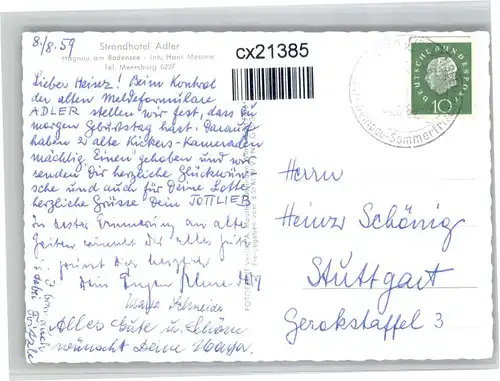 8./8.59
Strandhotel Adler
Hagnau am Bodensee - Inh. Hans Messme
Tel. Meersburg 6227
cx21385
Lieber Heinz! Beim Kontrol
der alten Meldeformulare
ADLER stellen wir fest, dass Du
morgen Geburtstag hast. Darauf
haben 2 alte Kückers-Kameraden
mächtig Einen gehoben und wir
senden Dir herzliche Glückwün-
sche und auch für Deine Lotte
herzliche Grüsse Dein JOTTLIEB
In bester Erinnerung an alte
Zeiten wünscht Dir alles Gute
Dein Eugen
Schneider
Alles Gute u. Schöne
wünscht Deine
DEUTSCHE BUNDESPOST
10
Sommerfri
Herrn
Heinz Schönig
Stuttgart
Gerokstaffel 3